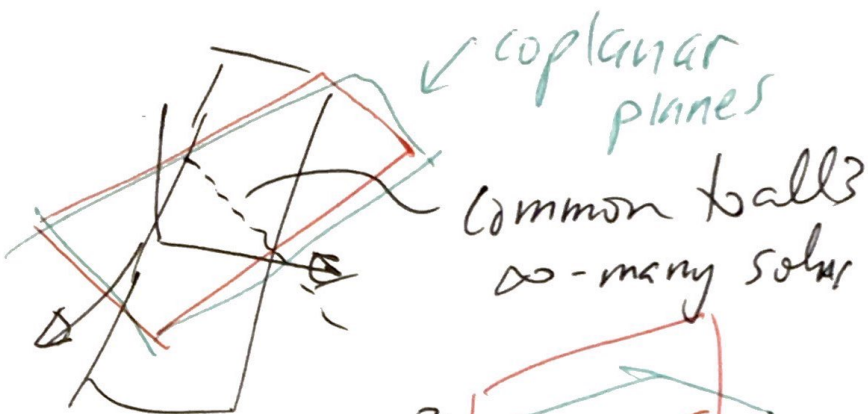 coplanar
planes
common
∞-many solns